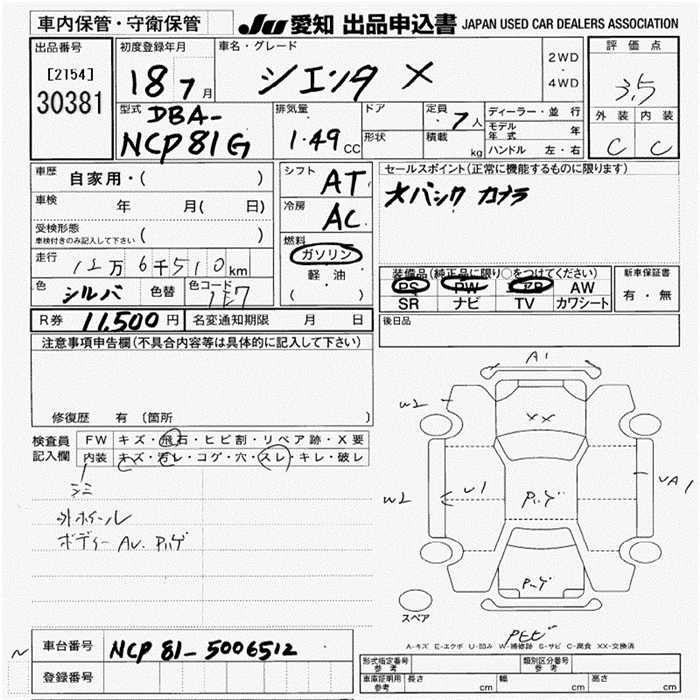 車内保管・守衛保管
JU 愛知 出品申込書 JAPAN USED CAR DEALERS ASSOCIATION
出品番号 初度登録年月 車名・グレード 評価点
[2154] 18 7月 シエンタ X 2WD 4WD 3.5
30381
外装 内装
C C
型式 DBA- 排気量 ドア 定員 7人 ディーラー・並行
NCP81G 1.49CC 形状 積載 kg モデル年式 年
ハンドル 左・右
車歴 自家用・( ) シフト AT セールスポイント(正常に機能するものに限ります)
車検 年 月( 日) 冷房 AC バック カメラ
受検形態 ( )
車検付きのみ記入して下さい
燃料 ガソリン
軽・油
( )
走行 12万6千510km
装備品(純正品に限り○をつけてください) 新車保証書
PS PW エアB AW 有・無
SR ナビ TV カワシート
色 シルバ 色替 色コード
R券 11,500円 名変通知期限 月 日
後日品
注意事項申告欄(不具合内容等は具体的に記入して下さい)
修復歴 有 〔箇所 〕
検査員 FW キズ・飛石・ヒビ割・リペア跡・X要
記入欄 内装 キズ・汚レ・コゲ・穴・スレ・キレ・破レ
シミ
外ホイール
ボディー AU.
A1
W2
XX
W2
U1
UA1
スペア
A-キズ E-エクボ U-凹み W-補修跡 S-サビ C-腐食 XX-交換済
車台番号 NCP81-5006512
登録番号
形式指定番号 参考 類別区分番号 参考
車庫証明用 参考 長さ cm 幅 cm 高さ cm